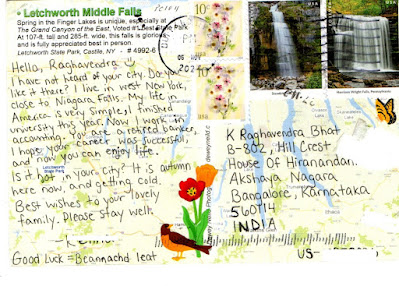 • Letchworth Middle Falls
Spring in the Finger Lakes is unique, especially at
The Grand Canyon of the East, Voted #1 Best
At 107-ft. tall and 285-ft. wide, this falls is glorious
and is fully appreciated best in person.
Letchworth State Park, Castile, NY - # 4992-6
Hello, Raghavendra
I have not heard of your city. Do you
like it there? I live in west New York,
close to Niagara Falls. My life in
America is very simple. I finished
university this year. Now I work in
accounting. You are a retired banker,
I hope your career was successful,
and now you can enjoy life.
Is it hot in your city? It is autumn
here now, and getting cold.
Best wishes to your lovely
family. Please stay well.
Good Luck = Beannachd leat
10c
10c
05 NOV
202
PM
K Raghavendra Bhat
B-802, Hill Crest
House Of Hiranandan.
Akshaya Nagara
Bangalore, Karnataka
560114
INDIA
US-